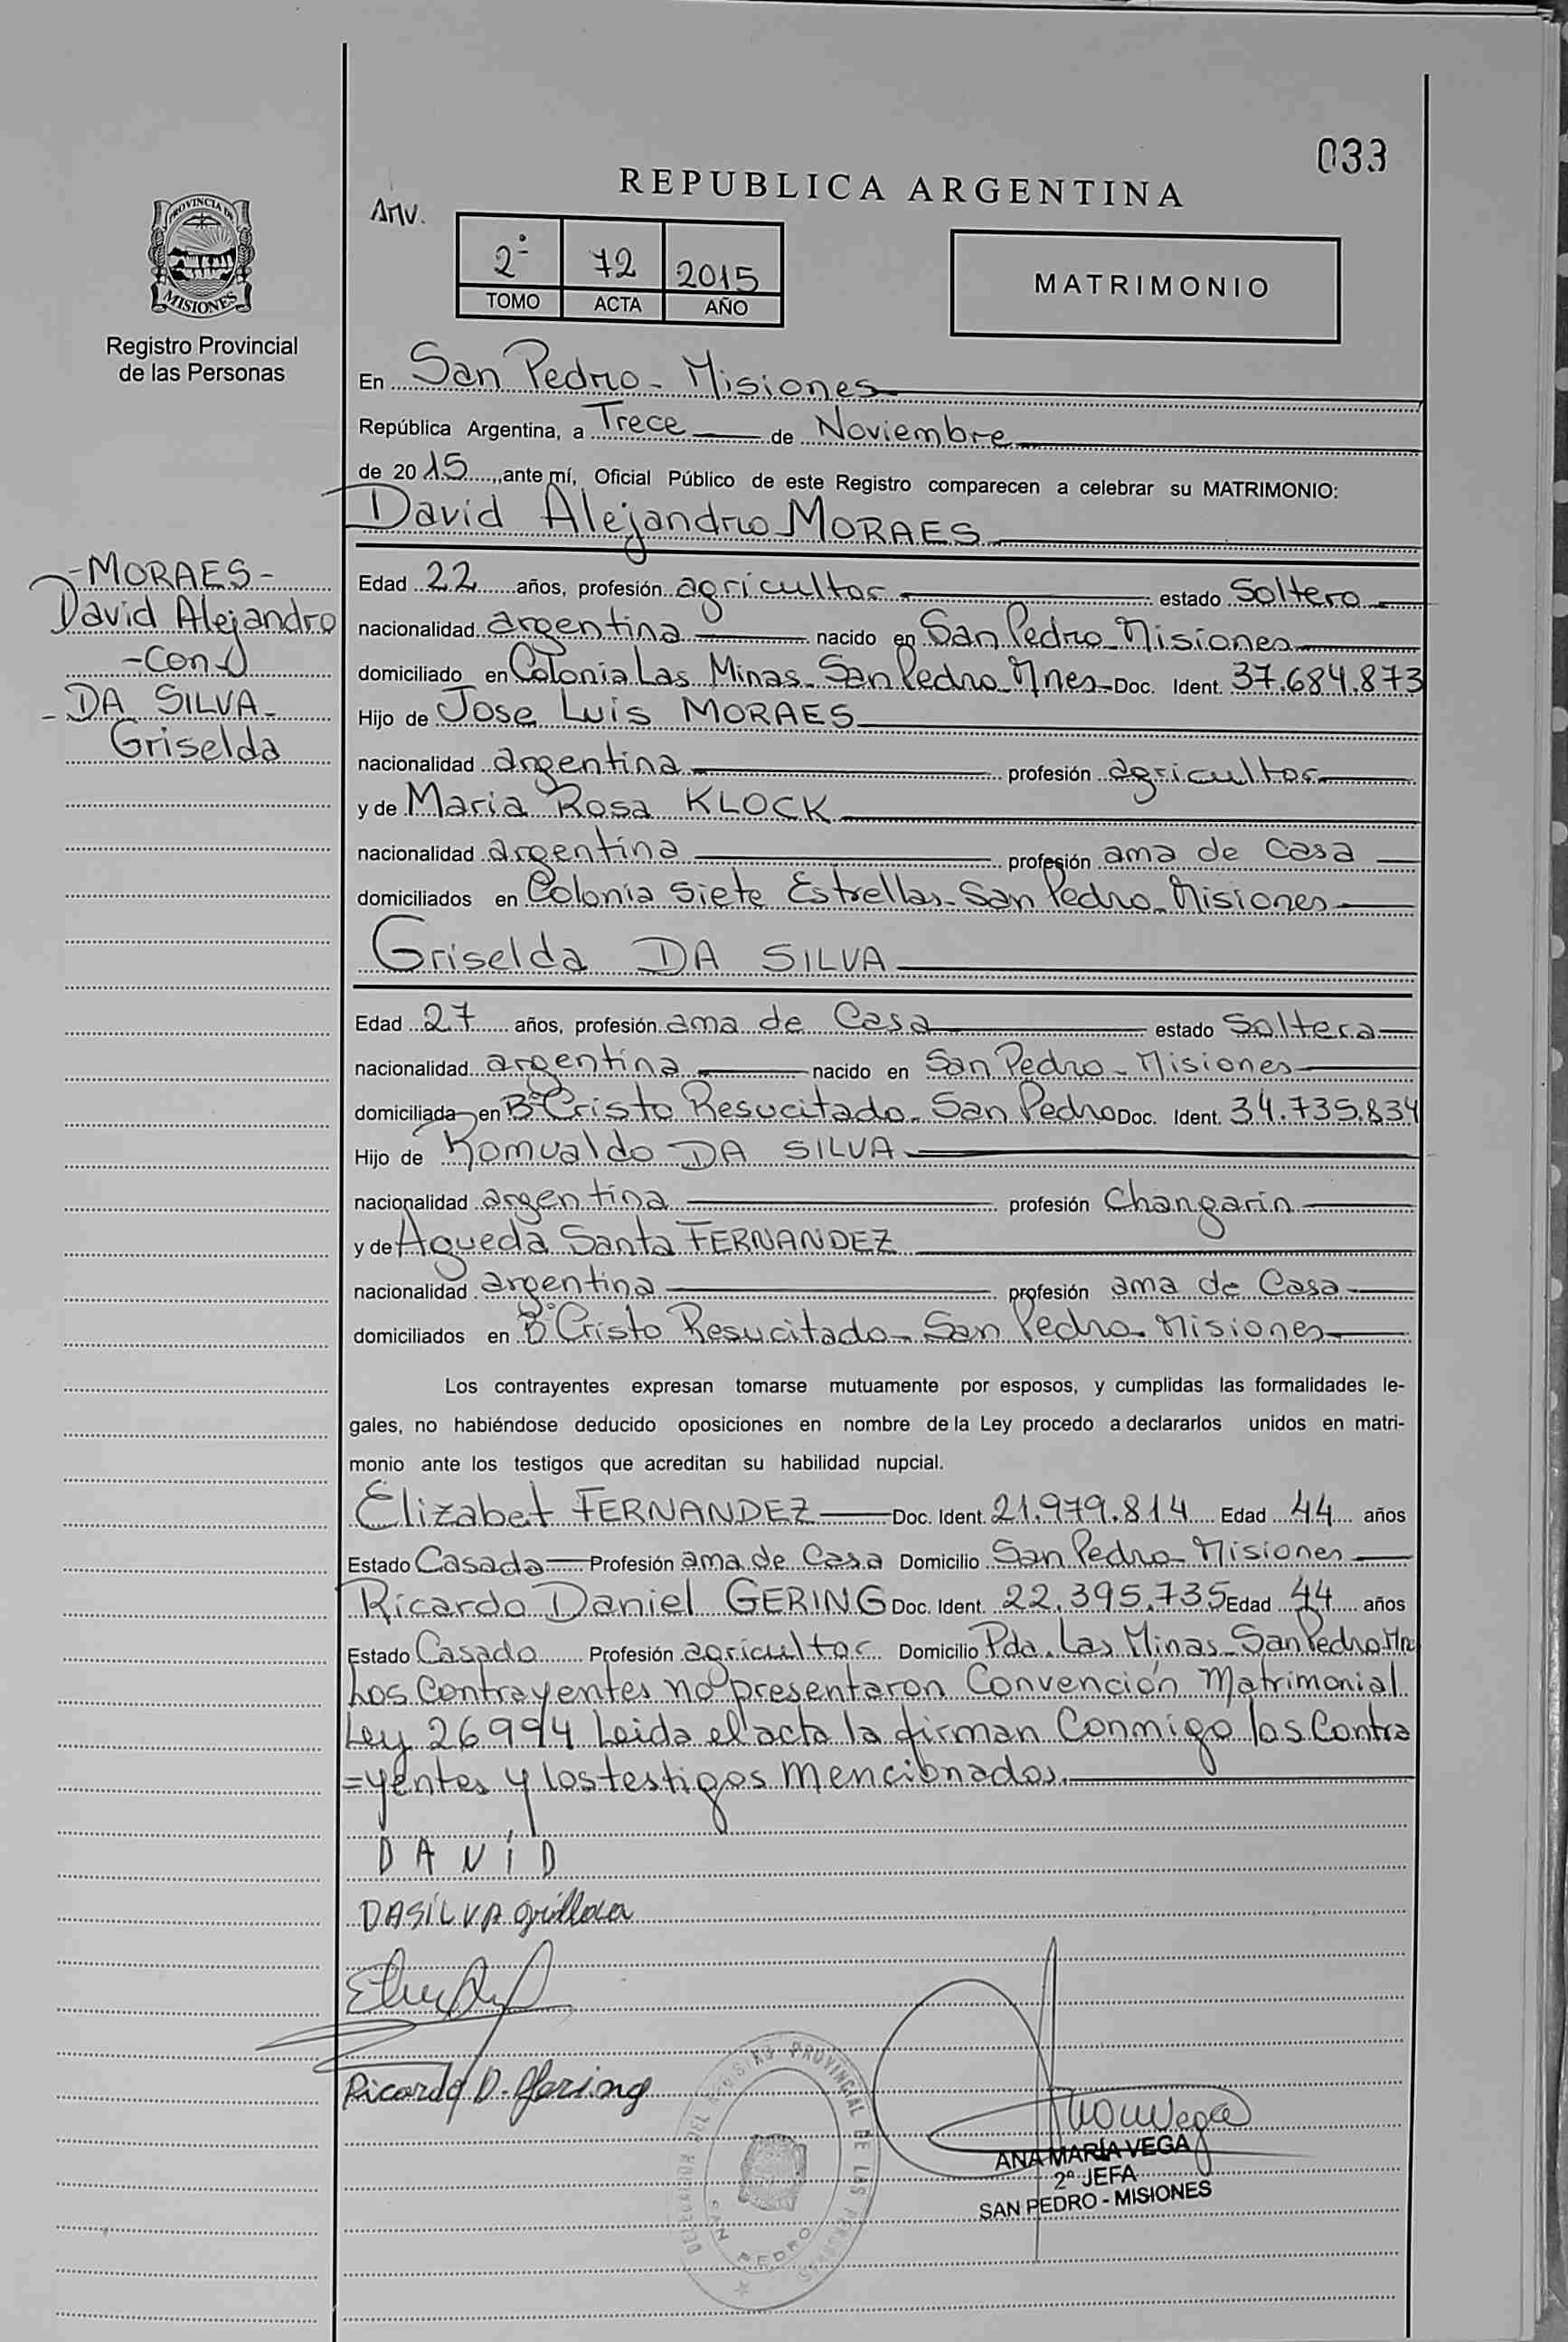 033
REPUBLICA ARGENTINA
Anv.
2º 72 2015
TOMO ACTA AÑO
MATRIMONIO
PROVINCIA DE
MISIONES
Registro Provincial
de las Personas
En San Pedro - Misiones
República Argentina, a Trece de Noviembre
de 2015, ante mí, Oficial Público de este Registro comparecen a celebrar su MATRIMONIO:
David Alejandro MORAES
-MORAES-
David Alejandro
-Con-
-DA SILVA-
Griselda
Edad 22 años, profesión agricultor estado Soltero
nacionalidad argentina nacido en San Pedro - Misiones
domiciliado en Colonia Las Minas - San Pedro - Mnes - Doc. Ident. 37.684.873
Hijo de Jose Luis MORAES
nacionalidad argentina profesión agricultor
y de Maria Rosa KLOCK
nacionalidad argentina profesión ama de casa
domiciliados en Colonia Siete Estrellas - San Pedro - Misiones
Griselda DA SILVA
Edad 27 años, profesión ama de Casa estado Soltera
nacionalidad argentina nacido en San Pedro - Misiones
domiciliada en Bº Cristo Resucitado - San Pedro Doc. Ident. 34.735.834
Hijo de Romualdo DA SILVA
nacionalidad argentina profesión Changarin
y de Agueda Santa FERNANDEZ
nacionalidad argentina profesión ama de Casa
domiciliados en Bº Cristo Resucitado - San Pedro - Misiones
Los contrayentes expresan tomarse mutuamente por esposos, y cumplidas las formalidades le-
gales, no habiéndose deducido oposiciones en nombre de la Ley procedo a declararlos unidos en matri-
monio ante los testigos que acreditan su habilidad nupcial.
Elizabet FERNANDEZ Doc. Ident. 21.979.814 Edad 44 años
Estado Casada Profesión ama de Casa Domicilio San Pedro - Misiones
Ricardo Daniel GERING Doc. Ident. 22.395.735 Edad 44 años
Estado Casado Profesión agricultor Domicilio Pda. Las Minas - San Pedro Mn
Los Contrayentes no presentaron Convención Matrimonial
Ley 26994 Leida el acta la firman Conmigo los Contra
=yentes y los testigos mencionados.
DAVÍD
DASILVA
Ricardo D. Gering
DELEGACION DEL REGISTRO PROVINCIAL DE LAS PERSONAS
SAN PEDRO
ANA MARÍA VEGA
2ª JEFA
SAN PEDRO - MISIONES